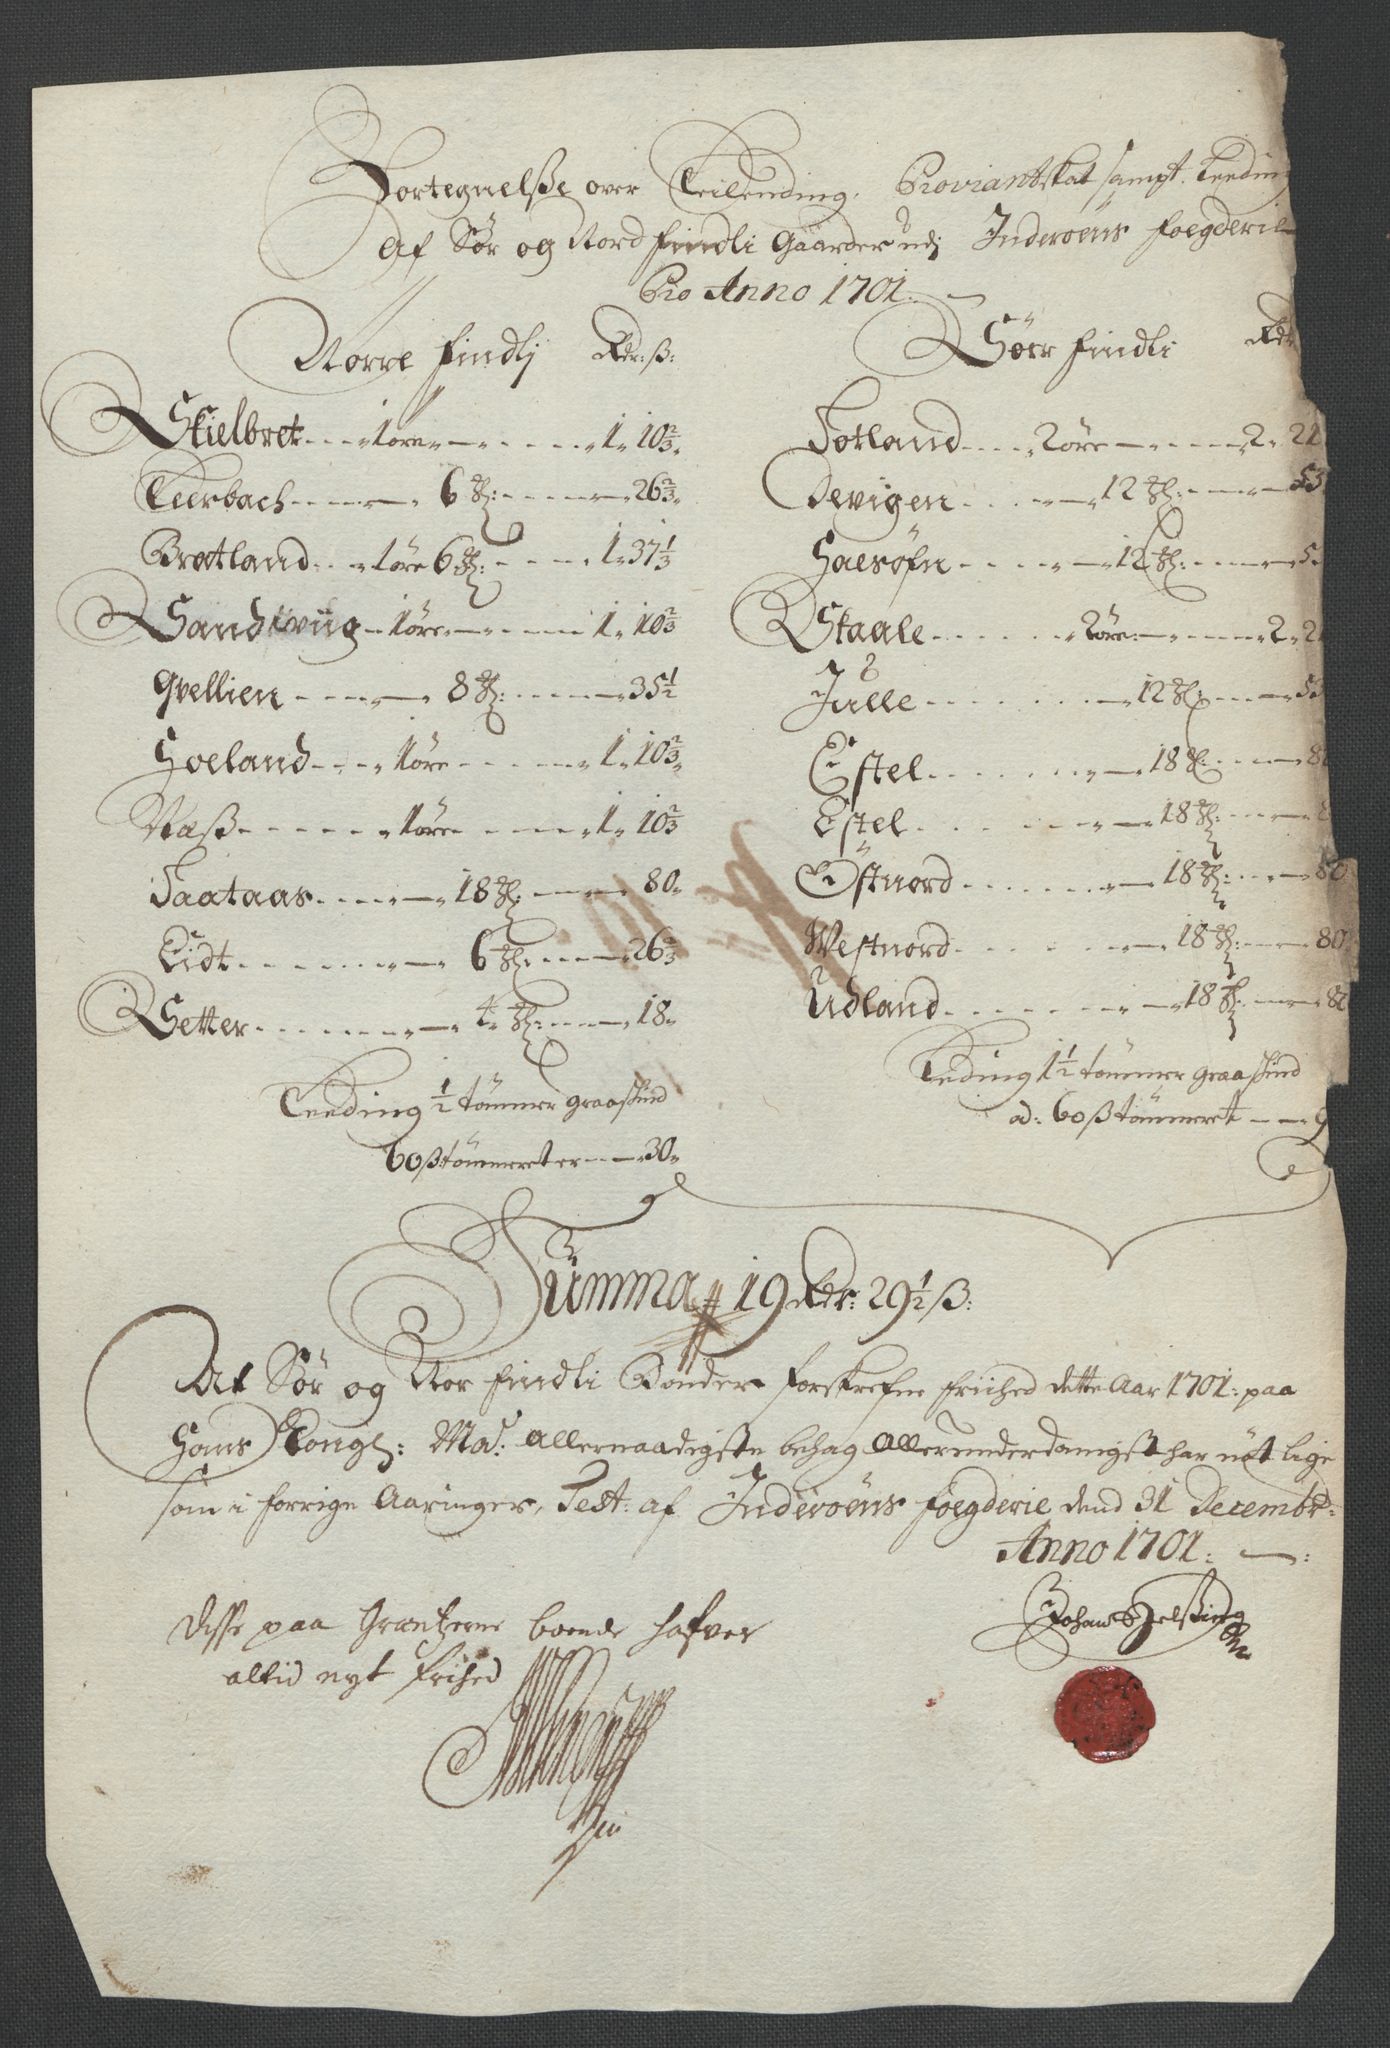 Fortegnelsße over Teilending, Proviantskat sampt Leeding
Af Sør og Nord findli Gaarder udj Inderoens foegderie
Pro Anno 1701.
Norre findlj Rdr: ß:
Skielbret 1 øre 1 10 2/3
Tuerbach 6 26 2/3
Bratland 1 øre 6 1 37 1/3
Sandwiig 1 øre 1 10 2/3
Qvellien 8 35 1/2
Hoeland 1 øre 1 10 2/3
Næß 1 øre 1 10 2/3
Saataas 18 80
Lidt 6 26 2/3
Setter 4 18
Leeding 1/2 tømmer graaskind
60 ß tømmeret er 30
Sørr findli Rdr
Totland 2 øre 2 21
Devigen 12 53
Haesøfn 12 5
Staale 2 øre 2 2
Julle 12 53
Estel 18 8
Estel 18
Østnord 18 80
Westnord 18 80
Udland 18 80
Leding 1 1/2 tømmer graaskind
ad: 60 ß tømmeret 9
Summa 19 Rdr: 29 1/2 ß:
Af Sør og Nor findli Bønder forskrefne friihed dette Aar 1701: paa
Hans Kongl: Ma: allernaadigste behag allerunderdanigst har nøt lige
som i forrige Aaringer, Test: af Inderoens foegderie dend 31 Decembr:
Anno 1701:
disse paa Grentzerne boende hafver
altid nyt frihed
Johan